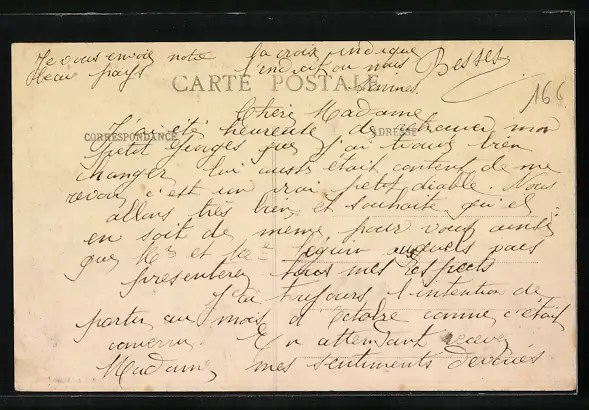 Je vous envoie notre la croix indique Besses
beau pays l'endroit ou nous
CARTE POSTALE
sommes.
166
Chère Madame
CORRESPONDANCE ADRESSE
J'ai été heureuse de retrouver mon
petit Georges que j'ai trouvé bien
changer, lui aussi était content de me
revoir, c'est un vrai petit diable. Nous
allons très bien et souhaite qu'il
en soit de même pour vous ainsi
que Mr et Me auquels vous
presenterez tous mes respects
J'ai toujours l'intention de
partir au mois d'Octobre comme c'était
convenu. En attendant recevez
Madame, mes sentiments devoués